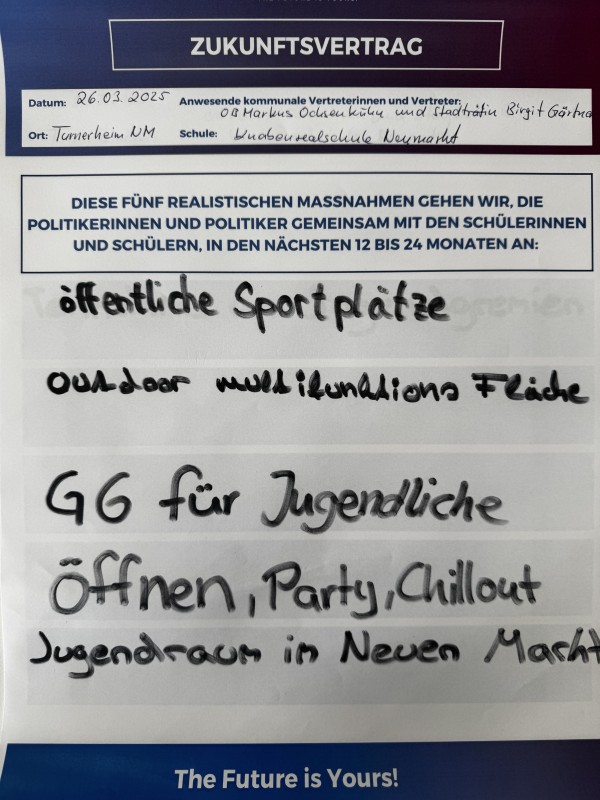 ZUKUNFTSVERTRAG
Datum: 26.03.2025 Anwesende kommunale Vertreterinnen und Vertreter:
OB Markus Ochsenkühn und Stadträtin Birgit Gärtner
Ort: Turnerheim NM Schule: Knabenrealschule Neumarkt
DIESE FÜNF REALISTISCHEN MASSNAHMEN GEHEN WIR, DIE
POLITIKERINNEN UND POLITIKER GEMEINSAM MIT DEN SCHÜLERINNEN
UND SCHÜLERN, IN DEN NÄCHSTEN 12 BIS 24 MONATEN AN:
öffentliche Sportplätze
Outdoor multifunktions Fläche
G6 für Jugendliche
Öffnen, Party, Chillout
Jugendraum in Neuen Markt
The Future is Yours!